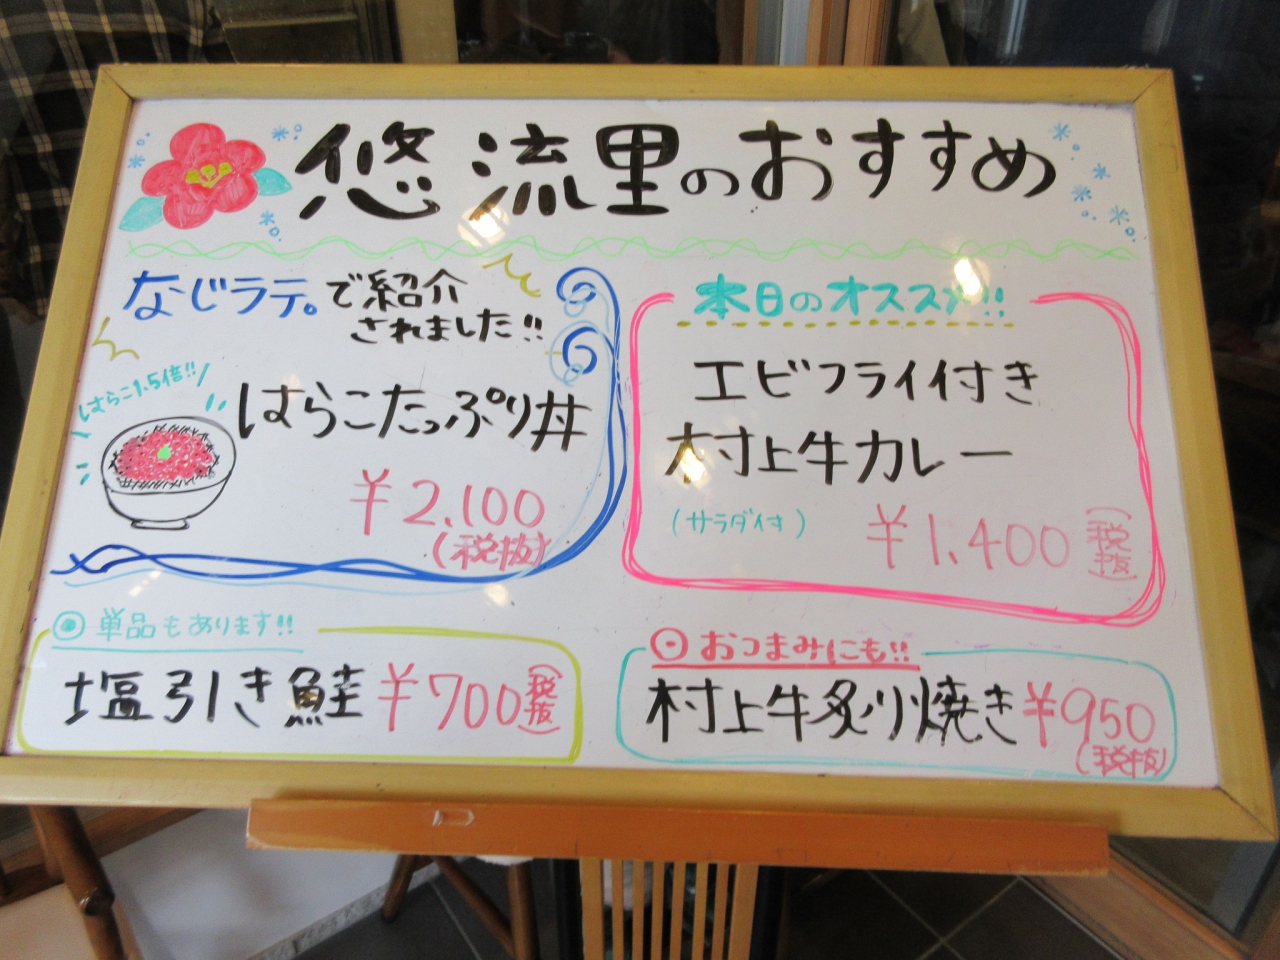 悠流里のおすすめ
なじラテ。で紹介
されました!!
はらこ1.5倍!!
はらこたっぷり丼
¥2,100
(税抜)
本日のオススメ!!
エビフライ付き
村上牛カレー
(サラダ付)
¥1,400(税抜)
⦿単品もあります!!
塩引き鮭¥700(税抜)
⊙おつまみにも!!
村上牛炙り焼き¥950
(税抜)